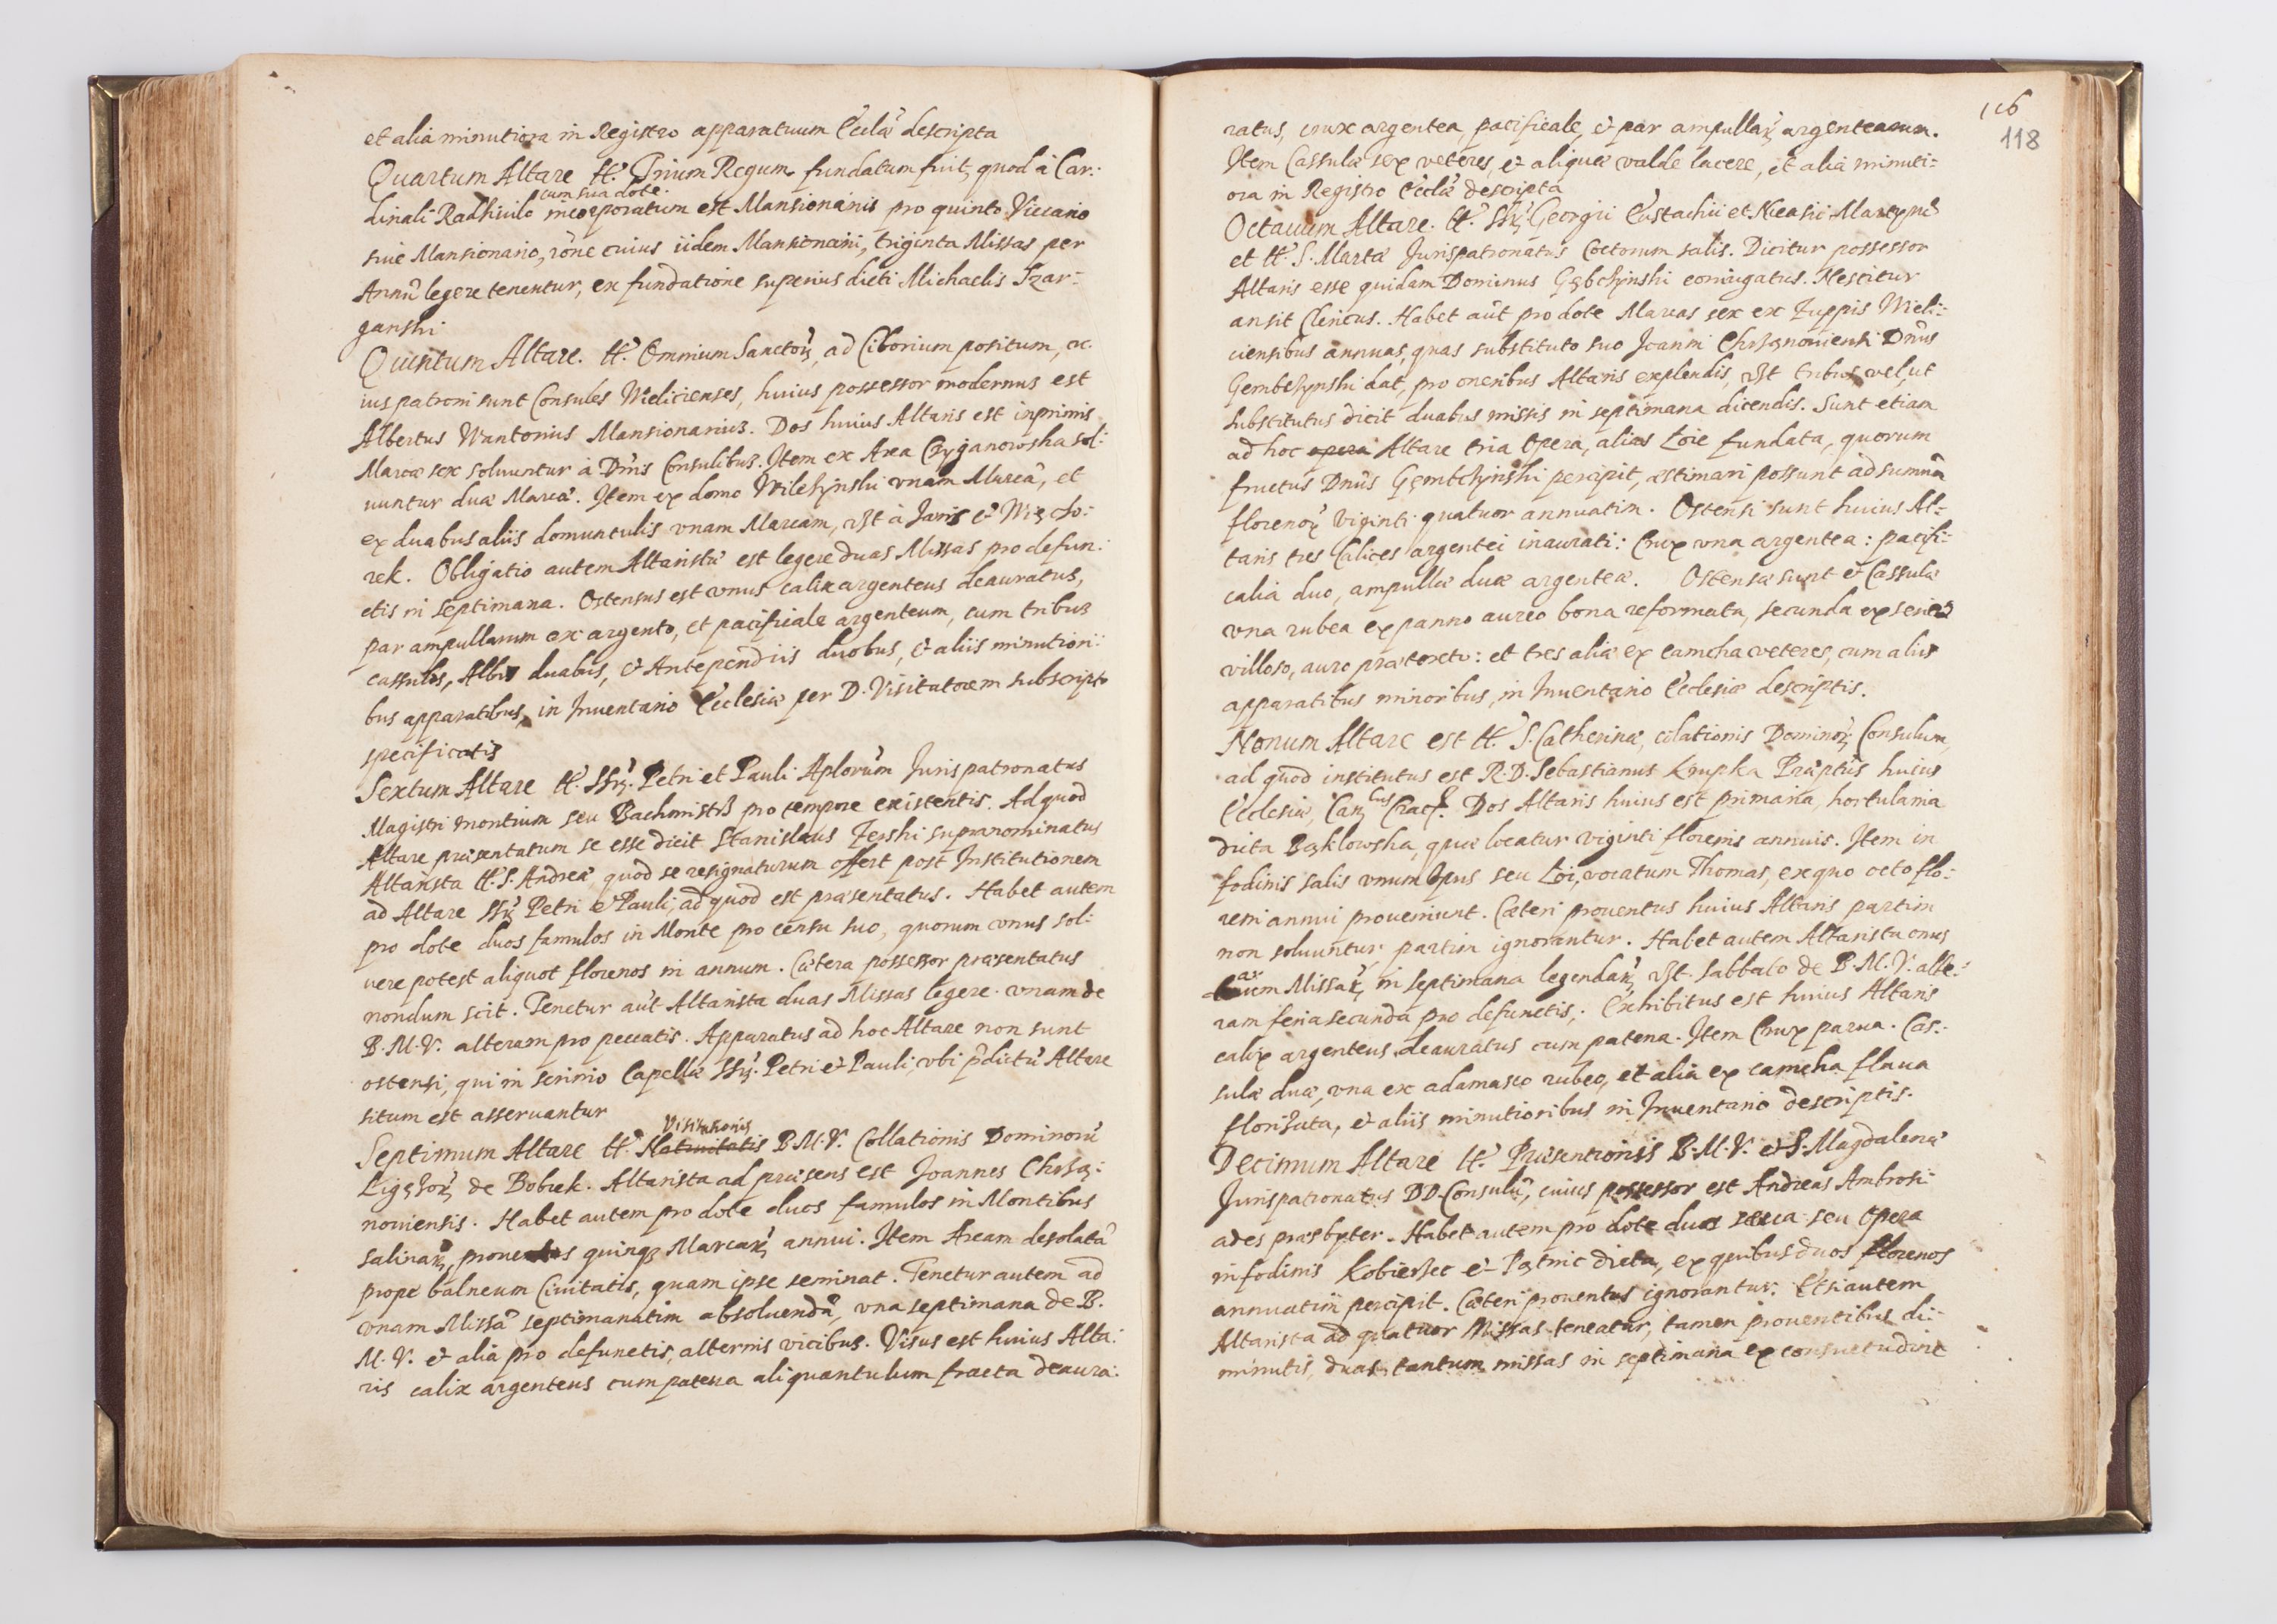 et alia minutiora in Registro apparatuum Eccłæ descripta
Quartum Altare tt. Trium Regum fundatum fuit, quod à Car:
cum sua dote.
dinali Radhiuilo incorporatum est Mansionariis pro quinto Vicario
siue Mansionario, rõne cuius iidem Mansionarii, triginta Missas per
Annũ legere tenentur, ex fundatione superius dicti Michaelis Izar:
ganski
Quintum Altare. tt. Omnium Sanctorꝝ, ad Ciborium positum, cu:
ius patroni sunt Consules Wielicienses, huius possessor modernus est
Albertus Wantonius Mansionarius. Dos huius Altaris est inprimis
Marcæ sex soluuntur à Dnis Consulibus. Item ex Area Czyganowska sol:
uuntur duæ Marcæ. Item ex domo Wilczynski vnam Marcã, et
ex duabus aliis domuntulis vnam Marcam, vst à Janis et Więcho:
rek. Obligatio autem Altaristæ est legere duas Missas pro defun:
ctis in septimana. Ostensus est vnus calix argenteus deauratus,
par ampullarum ex argento, et pacificale argenteum, cum tribus
cassulis, Albis duabus, & Antependiis duobus, & aliis minutiori:
bus apparatibus, in Inuentario Ecclesiæ per D. Visitatorem subscripto
specificatis
Sextum Altare tt. SSrꝝ. Petri et Pauli Aplorũm Jurispatronatus
Magistri montium seu Bachmistrz pro tempore existentis. Ad quod
Altare præsentatum se esse dicit Stanislaus Zęski supranominatus
Altarista tt. S. Andreæ, quod se resignaturum offert post Institutionem
ad Altare SSrꝝ Petri & Pauli, ad quod est præsentatus. Habet autem
pro dote duos famulos in Monte pro censu suo, quorum vnus sol:
uere potest aliquot florenos in annum. Cætera possessor præsentatus
nondum scit. Tenetur aũt Altarista duas Missas legere vnam de
B. M. V. alteram pro peccatis. Apparatus ad hoc Altare non sunt
ostensi, qui in scrinio Capellæ SSrꝝ. Petri & Pauli, vbi p̃dictũ Altare
situm est asseruantur
Visitationis
Septimum Altare tt. Natiuitatis B. M. V. Collationis Dominorũ
Ligęzorꝝ de Bobrek. Altarista ad præsens est Joannes Chrzą:
nouiensis. Habet autem pro dote duos famulos in Montibus
salinarꝝ, prouentus quinqꝫ Marcarꝝ annui. Item Aream desolatã
prope balneum Ciuitatis, quam ipse seminat. Tenetur autem ad
vnam Missã septimanatim absoluendã, vna septimana de B.
M. V. & alia pro defunctis, alternis vicibus. Visus est huius Alta:
ris calix argenteus cum patena aliquantulum fracta deaura:
116
118
ratus, crux argentea, pacificale, & par ampullarꝝ argentearum.
Item Cassulæ sex veteres, & aliquæ valde laceræ, et alia minuti:
ora in Registro Eccłæ descripta
Octauum Altare. tt. SSrꝝ. Georgii Eustachii et Nicasii Martyrũ
et tt. S. Martæ Jurispatronatus Coctorum salis. Dicitur possessor
Altaris esse quidam Dominus Gębczynski coniugatus. Nescitur
an sit Clericus. Habet aũt pro dote Marcas sex ex Zuppis Wieli:
ciensibus annuas, quas substituto suo Joanni Chrzanouiensi Dnus
Gembczynski dat, pro oneribus Altaris explendis, vst tribus vel, ut
substitutus dicit duabus missis in septimana dicendis. Sunt etiam
ad hoc opera Altare tria Opera, alias Łoie fundata, quorum
fructus Dnus Gęmbczynski percipit, æstimari possunt ad summã
florenorꝝ viginti quatuor annuatim. Ostensi sunt huius Al:
taris tres Calices argentei inaurati: Crux vna argentea: pacifi:
calia duo, ampullæ duæ argenteæ. Ostensæ sunt & Cassulæ
vna rubea ex panno aureo bona reformata, secunda ex serico
villoso, auro prætexto: et tres aliæ ex camcha veteres, cum aliis
apparatibus minoribus, in Inuentario Ecclesiæ descriptis.
Nonum Altare est tt. S. Catherinæ, colationis Dominorꝝ Consulum,
ad quod institutus est R. D. Sebastianus Krupka Præptũs huius
Ecclesiæ, Canꝫcus Crac. Dos Altaris huius est primaria, hortulania
dicta Bąklowska, quæ locatur viginti florenis annuis. Item in
fodinis salis vnum Opus seu Łoi, vocatum Thomas, ex quo octo flo:
reni annui proueniunt. Cæteri prouentus huius Altaris partim
non soluuntur, partim ignorantur. Habet autem Altarista onus
duarum Missarꝝ in septimana legendarꝝ, vst. sabbato de B. M. V. alte:
ram feria secunda pro defunctis. Exhibitus est huius Altaris
calix argenteus deauratus cum patena. Item Crux parua. Cas:
sulæ duæ, vna ex adamasco rubeo, et alia ex camcha flaua
florisata, & aliis minutioribus in Inuentario descriptis.
Decimum Altare tt. Præsentationis B. M. V. & S. Magdalenæ
Jurispatronatus DD. Consulũ, cuius possessor est Andreas Ambrosi:
ades præsbyter. Habet autem pro dote duos seu Opera
in fodinis Kobierzec & Pątnic dicta, ex quibus duos florenos
annuatim percipit. Cæteri prouentus ignorantur. Etsi autem
Altarista ad quatuor Missas teneatur, tamen prouentibus di:
minutis, duas tantum missas in septimana ex consuetudine